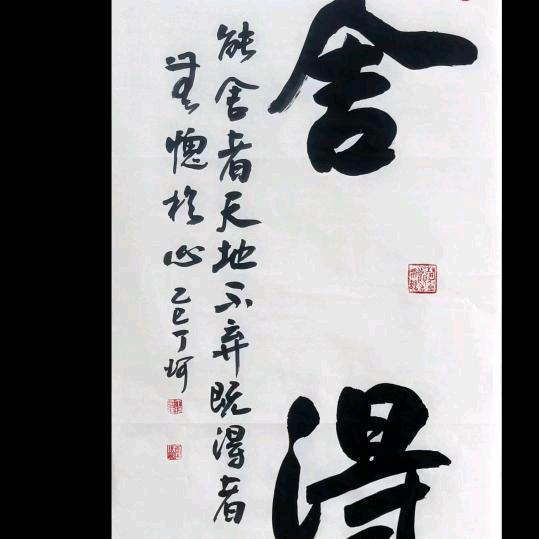 舍得
能舍者天地不弃既得者
无愧于心乙巳丁珂